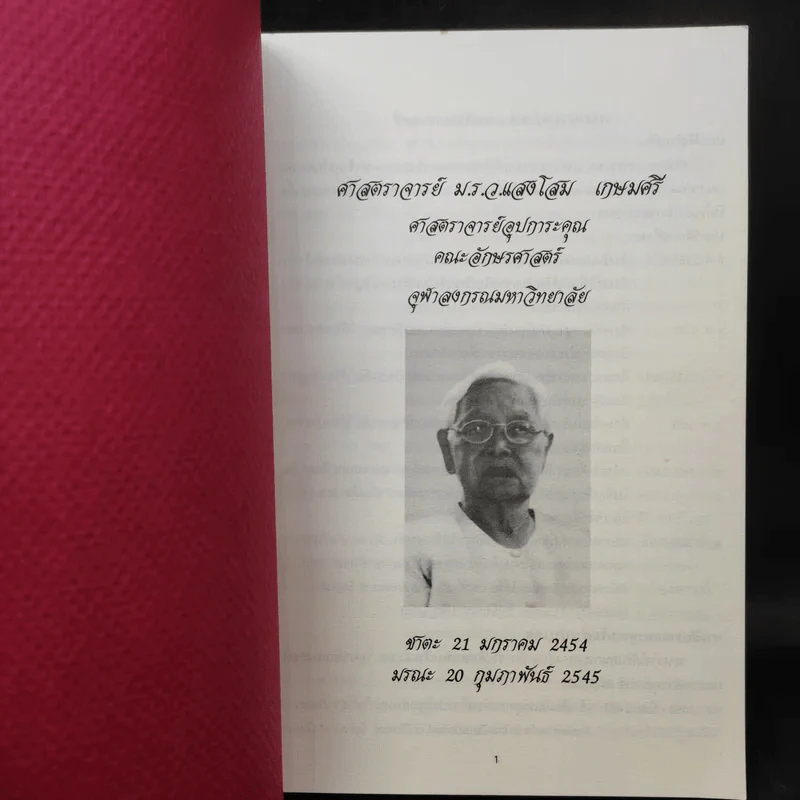 ศาสตราจารย์ ม.ร.ว.แสงโสม เกษมศรี
ศาสตราจารย์อุปการะคุณ
คณะอักษรศาสตร์
จุฬาลงกรณมหาวิทยาลัย
ชาตะ 21 มกราคม 2454
มรณะ 20 กุมภาพันธ์ 2545
1